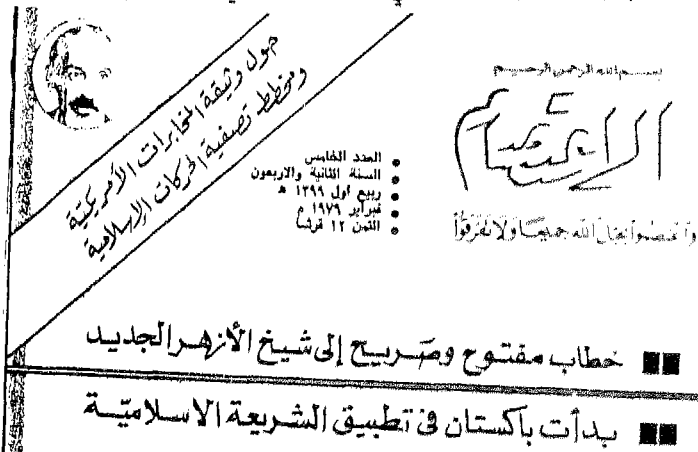 بسم الله الرحمن الرحيم
الاعتصام
واعتصموا بحبل الله جميعا ولا تفرقوا
العدد الخامس
السنة الثانية والاربعون
ربيع اول ١٣٩٩ هـ
فبراير ١٩٧٩ م
الثمن ١٢ قرشا
حول وثيقة المخابرات الأمريكية
ومخطط تصفية الحركات الإسلامية
خطاب مفتوح وصريح إلى شيخ الأزهر الجديد
بدأت باكستان في تطبيق الشريعة الاسلامية